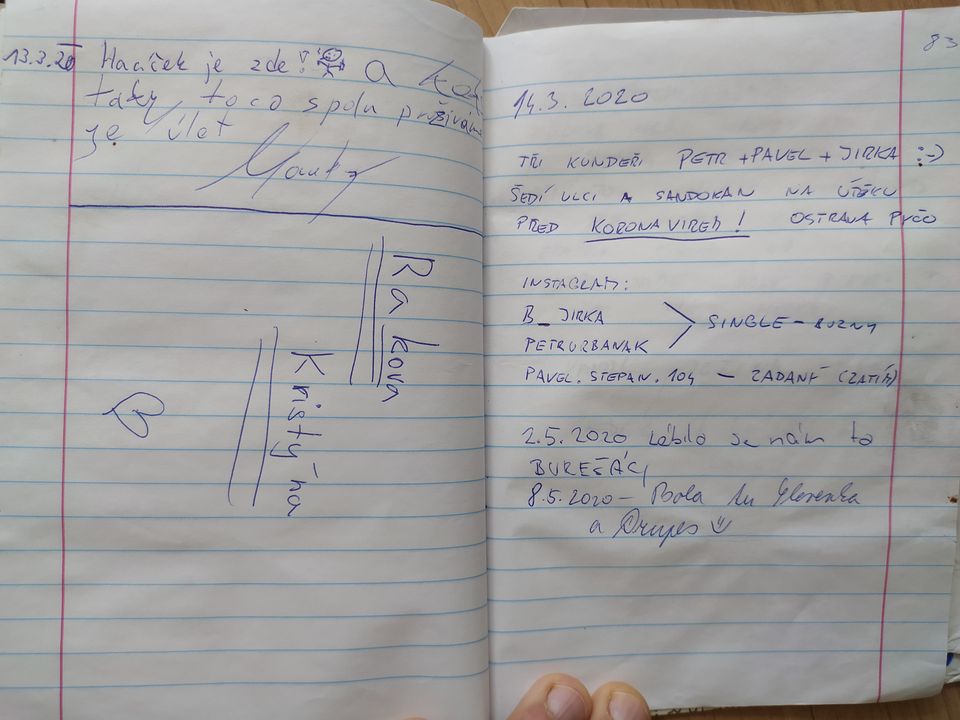 13.3.20 Hacíček je zde! a
taky toco spolu prožívám
je úlet
Rakova
Kristý-na
83
14.3. 2020
TŘI KUNDEŘI PETR + PAVEL + JIRKA :-)
ŠEDÍ VLCI A SANDOKAN NA ÚTĚKU
PŘED KORONAVIREM! OSTRAVA PYČO
INSTAGRAM:
B_JIRKA
PETRURBANAK
> SINGLE - BUZNY
PAVEL.STEPAN.104 - ZADANÝ (ZATÍM)
2.5.2020 Líbilo se nám to
BUREŠÁCI
8.5.2020 - Byla tu Slovenka
a Drupes